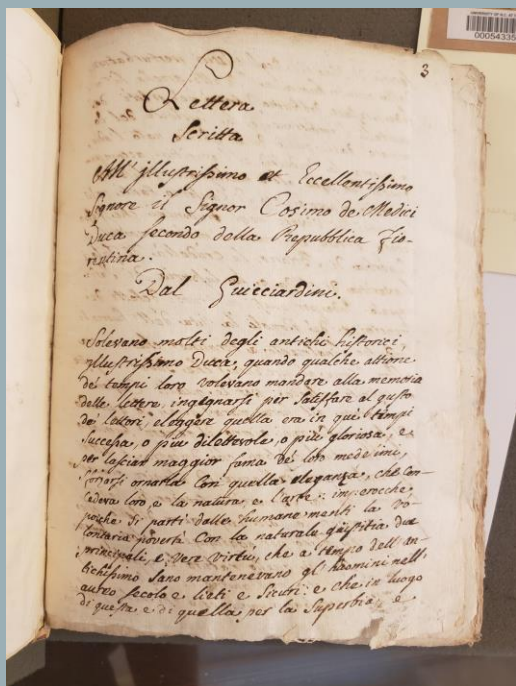 0005433
3
Lettera
Scritta
All' jllustrissimo et Eccellentissimo
Signore il Signor Cosimo de Medici
Duca secondo della Repubblica Fio-
rentina.
Dal Guicciardini.
Solevano molti degli antichi historici,
jllustrissimo Duca, quando qualche attione
de' tempi loro volevano mandare alla memoria
delle lettere, ingegnarsi per satisfare al gusto
de' lettori, eleggere quella era in que' tempi
successa, o più dilettevole, o più gloriosa, e
per lasciar maggior fama de' loro medesimi,
sforzarsi ornarla con quella eleganza, che con-
cedeva loro, e la natura e l'arte: imperochè,
poiche si partì dalle humane menti la vo-
lontaria povertà con la naturale giustitia due
principali, e vere virtù, che a tempo dell' an-
tichissimo Jano mantenevano gl' huomini nell'
aureo secolo e lieti e sicuri: e che in luogo
di questa e di quella, per la superbia, e